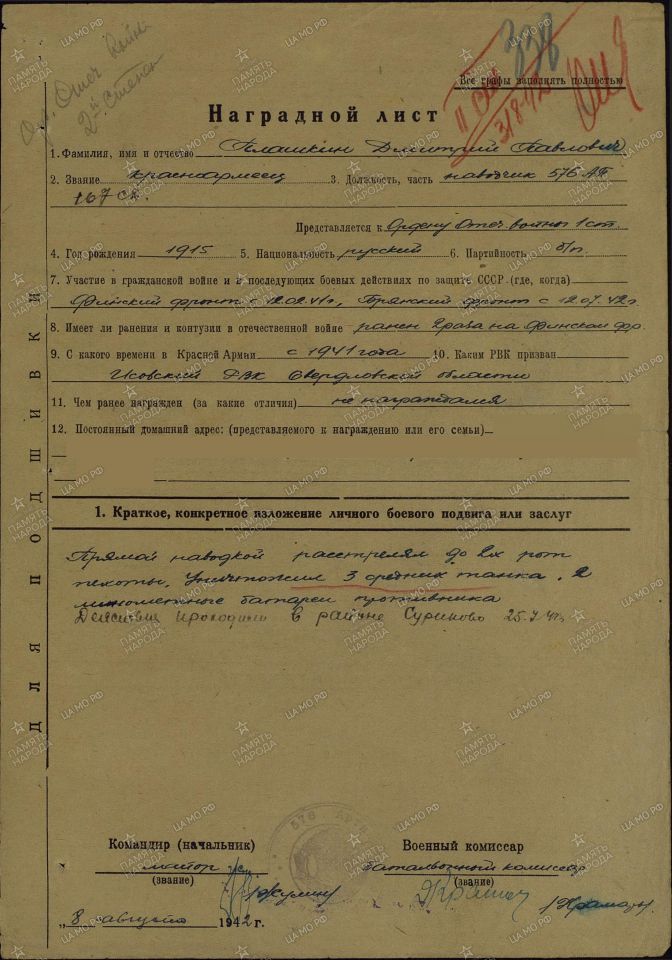 Орд. Отеч. Войны
2-й степен
338
Все графы заполнять полностью
Наградной лист
1. Фамилия, имя и отчество Плашкин Дмитрий Павлович
2. Звание красноармеец 3. Должность, часть наводчик 576 АП
167 сд.
Представляется к Ордену Отеч. войны 1 ст.
4. Год рождения 1915 5. Национальность русский 6. Партийность б/п
7. Участие в гражданской войне и в последующих боевых действиях по защите СССР (где, когда)
Финский фронт с 12.02.41г., Брянский фронт с 12.07.42г.
8. Имеет ли ранения и контузии в отечественной войне ранен 2 раза на Финском фр.
9. С какого времени в Красной Армии с 1941 года 10. Каким РВК призван
Исовский РВК Свердловской области
11. Чем ранее награжден (за какие отличия) не награждался
12. Постоянный домашний адрес: (представляемого к награждению или его семьи)
1. Краткое, конкретное изложение личного боевого подвига или заслуг
Прямой наводкой расстрелял до 2х рот
пехоты. Уничтожил 3 средних танка, 2
минометные батареи противника
Действия проходили в районе Суриково
ДЛЯ ПОДШИВКИ
Командир (начальник) Военный комиссар
майор батальонный комиссар
(звание) (звание)
„8 августа 1942 г.